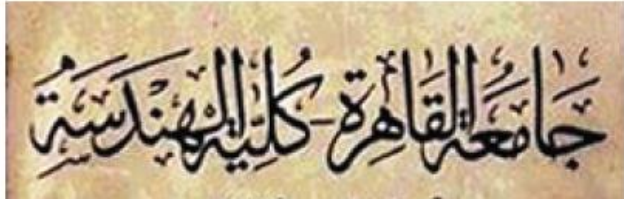 جامعة القاهرة - كلية الهندسة